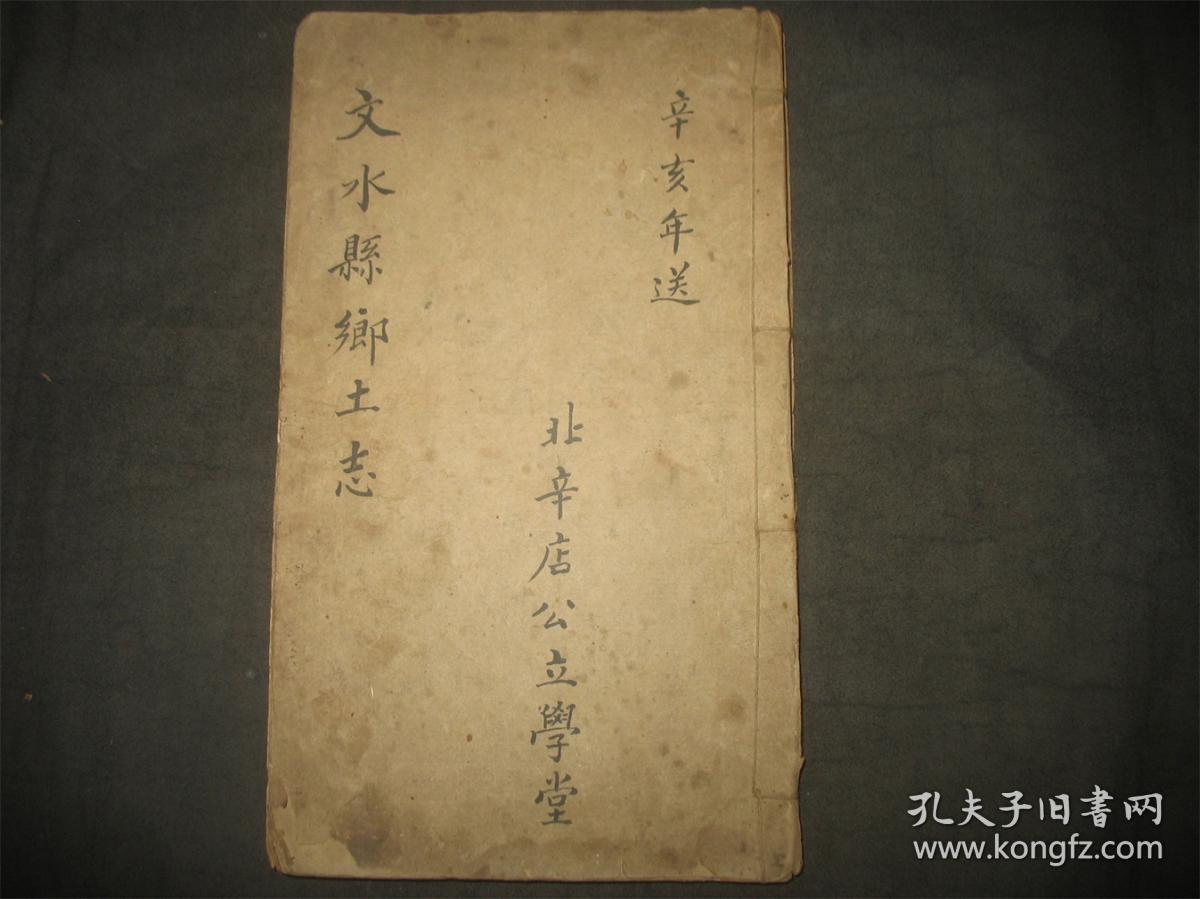 辛亥年送
北辛店公立學堂
文水縣鄉土志
孔夫子旧書网
www.kongfz.com